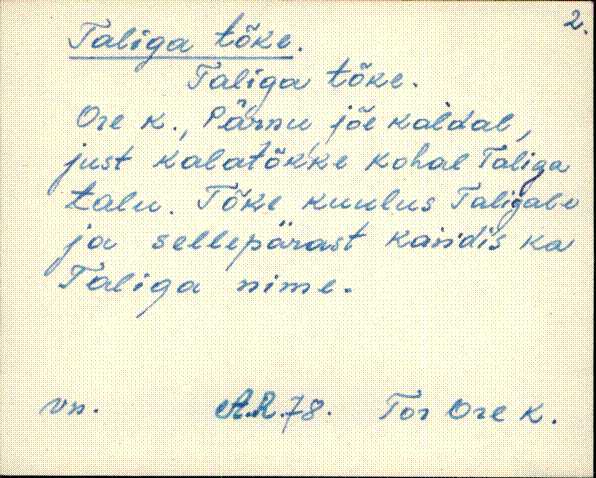 2.
Taliga tõke.
Taliga tõke.
Ore k., Pärnu jõe kaldal,
just kalatõkke kohal Taliga
talu. Tõke kuulus Taligale
ja sellepärast kandis ka
Taliga nime.
vn. A.R.78. Tor Ore k.